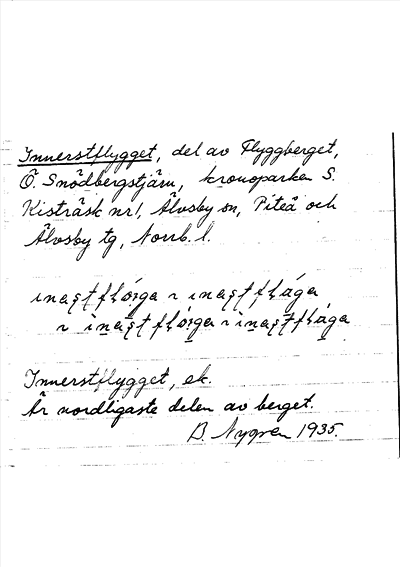 Innerstflygget, del av Flyggberget,
Ö. Snödbergstjärn, kronoparken S.
Kisträsk nr 1, Älvsby sn, Piteå och
Älvsby tg, Norrb. l.
Innerstflygget, ek.
Är nordligaste delen av berget.
B. Nygren 1935.